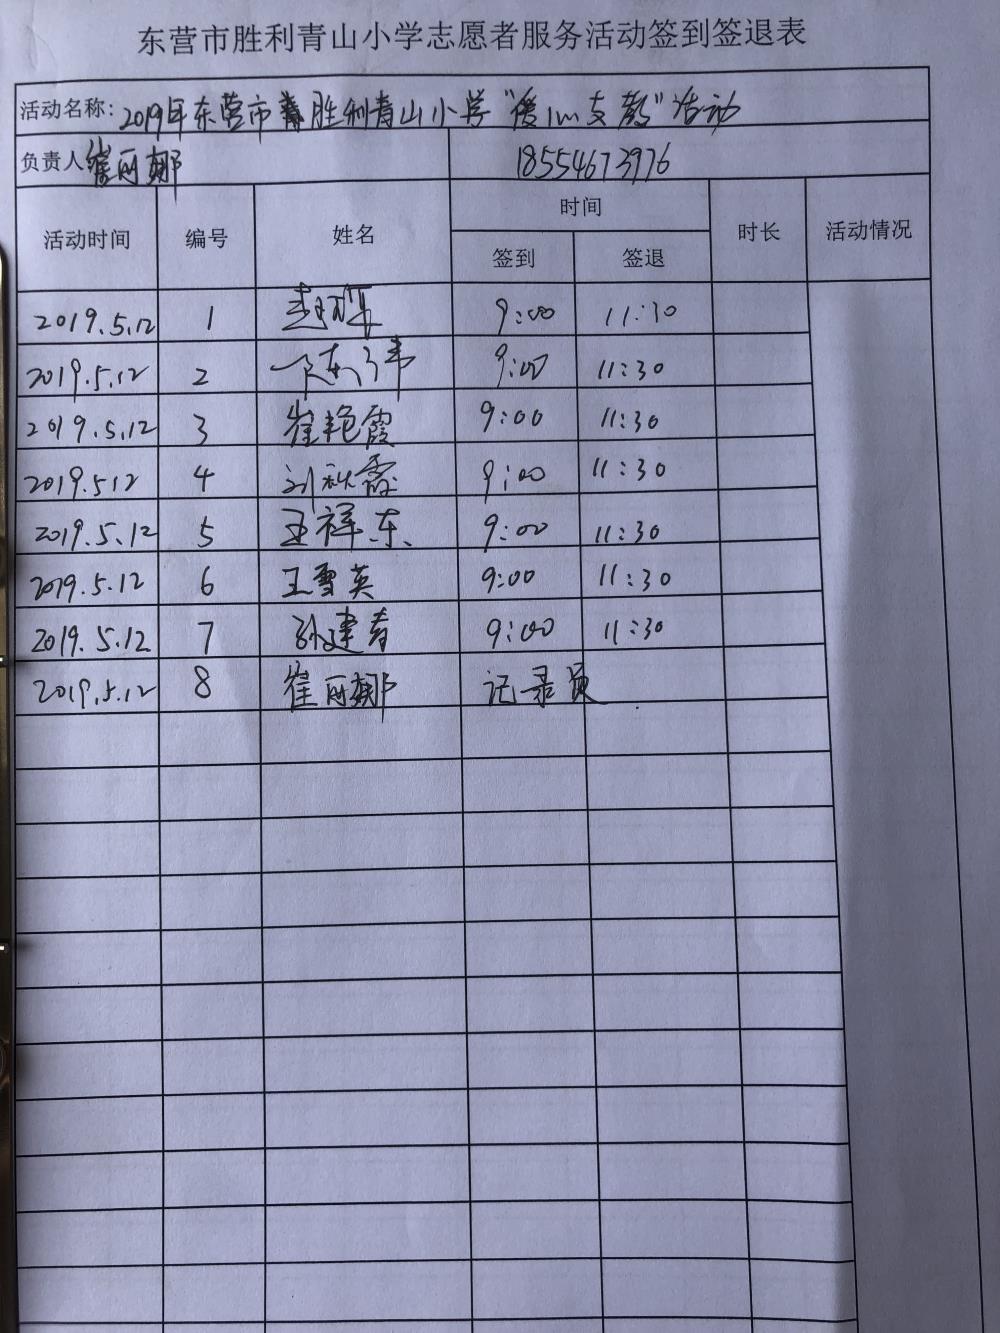 东营市胜利青山小学志愿者服务活动签到签退表
活动名称: 2019年东营市胜利青山小学"爱心支教"活动
负责人 崔丽娜 18554673976
活动时间 编号 姓名 时间 时长 活动情况
签到 签退
2019.5.12 1 9:00 11:30
2019.5.12 2 陈东伟 9:00 11:30
2019.5.12 3 崔艳霞 9:00 11:30
2019.5.12 4 刘秋霞 9:00 11:30
2019.5.12 5 王祥东 9:00 11:30
2019.5.12 6 王雪英 9:00 11:30
2019.5.12 7 孙建春 9:00 11:30
2019.5.12 8 崔丽娜 记录员